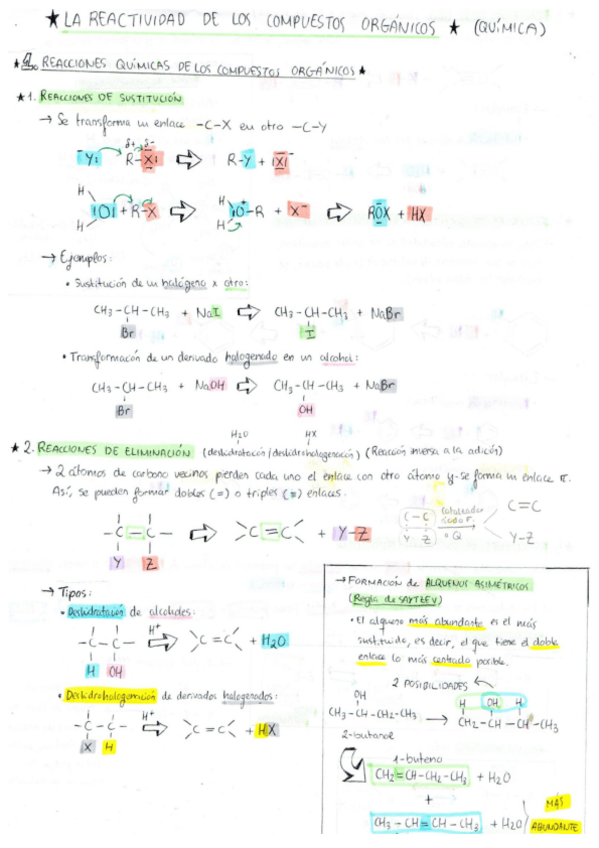 ★ LA REACTIVIDAD DE LOS COMPUESTOS ORGÁNICOS ★ (QUÍMICA)
★ REACCIONES QUÍMICAS DE LOS COMPUESTOS ORGÁNICOS ★
★ 1. REACCIONES DE SUSTITUCIÓN
→ Se transforma un enlace -C-X en otro -C-Y
δ+ δ-
⁻Y: R-X: ⇒ R-Y + |X|⁻
H
|O| + R-X ⇒ |O⁺-R + X⁻ ⇒ ROX + HX
H
→ Ejemplos:
• Sustitución de un halógeno x otro:
CH3-CH-CH3 + NaI ⇒ CH3-CH-CH3 + NaBr
Br I
• Transformación de un derivado halogenado en un alcohol:
CH3-CH-CH3 + NaOH ⇒ CH3-CH-CH3 + NaBr
Br OH
H2O HX
★ 2. REACCIONES DE ELIMINACIÓN (deshidratación/deshidrohalogenación) (Reacción inversa a la adición)
→ 2 átomos de carbono vecinos pierden cada uno el enlace con otro átomo y se forma un enlace π.
Así, se pueden formar dobles (=) o triples (≡) enlaces.
-C-C- ⇒ >C=C< + Y-Z
Y Z
C-C catalizador C=C
Y Z + Q Y-Z
→ Tipos:
• Deshidratación de alcoholes:
-C-C- H⁺ → >C=C< + H2O
H OH
• Deshidrohalogenación de derivados halogenados:
-C-C- H⁺ → >C=C< + HX
X H
→ FORMACIÓN de ALQUENOS ASIMÉTRICOS
(Regla de SAYTEEV)
• El alqueno más abundante es el más
sustituido, es decir, el que tiene el doble
enlace lo más centrado posible.
2 POSIBILIDADES
OH H OH H
CH3-CH-CH2-CH3 → CH2-CH-CH-CH3
2-butanol
1-buteno
CH2=CH-CH2-CH3 + H2O
+
CH3-CH=CH-CH3 + H2O
MÁS
ABUNDANTE